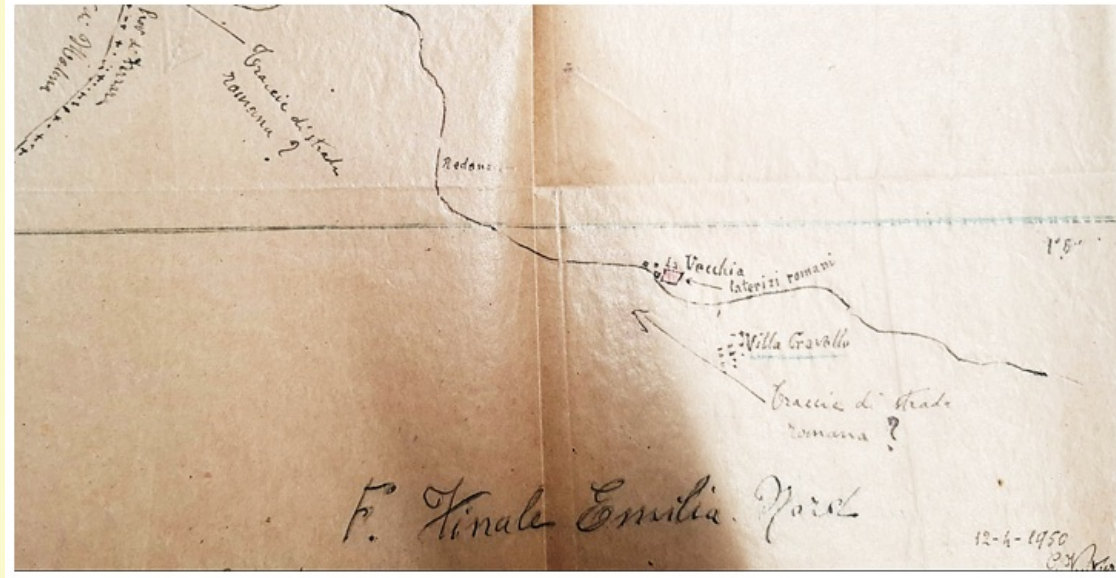 Prov. di Ferrara
di Modena
Traccie di strada
romana ?
La Vecchia
laterizi romani
Villa Gravallo
Traccie di strada
romana ?
F. Finale Emilia. Nord
12-4-1950